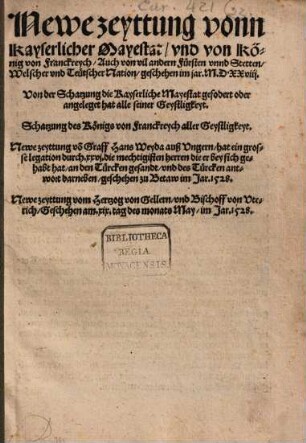 Cur. 421 (32
Newe zeyttung vonn
Kayserlicher Mayestat/ vnd von Kö-
nig von Franckreych/ Auch von vil andern Fürsten vnnd Stetten/
Welscher vnd Teütscher Nation/ geschehen im jar. M.D.XXviij.
Von der Schatzung die Kayserliche Mayestat gefodert oder
angeleget hat alle seiner Geystligkeyt.
Schatzung des Königs von Franckreych aller Geystligkeyt.
Newe zeyttung võ Graff Hans Weyda auß Vngern/ hat ein gros-
se legation durch. xxvj. die mechtigisten herren die er bey sich ge-
habt hat/ an den Türcken gesandt/ vnd des Türcken ant-
wort darneben/ geschehen zu Betaw im Jar. 1528.
Newe zeyttung vom Hertzog von Gellern/ vnd Bischoff von Vte-
rich/ Geschehen am. xix. tag des monats May/ im Jar. 1528.
BIBLIOTHECA
REGIA
MONACENSIS.